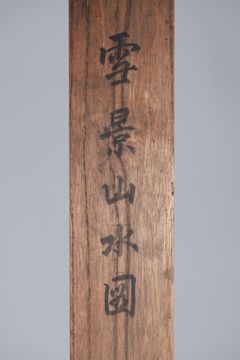 雪景山水図